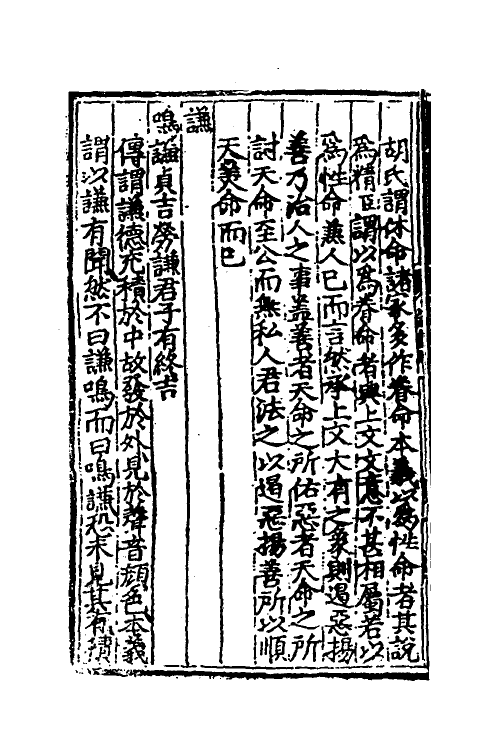 胡氏謂休命諸家多作眷命本義以為性命者其說
為精臣謂以為眷命者與上文文意不甚相屬若以
為性命兼人已而言然承上文大有之象則遏惡揚
善乃治人之事盖善者天命之所佑惡者天命之所
討天命至公而無私人君法之以遏惡揚善所以順
天命而已
謙
鳴謙貞吉勞謙君子有終吉
傳謂謙德充積於中故發於外見於聲音顔色本義
謂以謙有聞然不曰謙鳴而曰鳴謙殆未見其有積